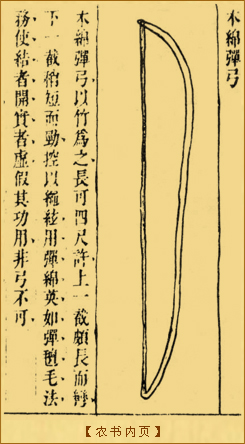 木綿彈弓
木綿彈弓以竹爲之長可四尺許上一截頗長而彎
下一截稍短而勁控以繩絃用彈綿英如彈氊毛法
務使結者開實者虛假其功用非弓不可
【农书内页】